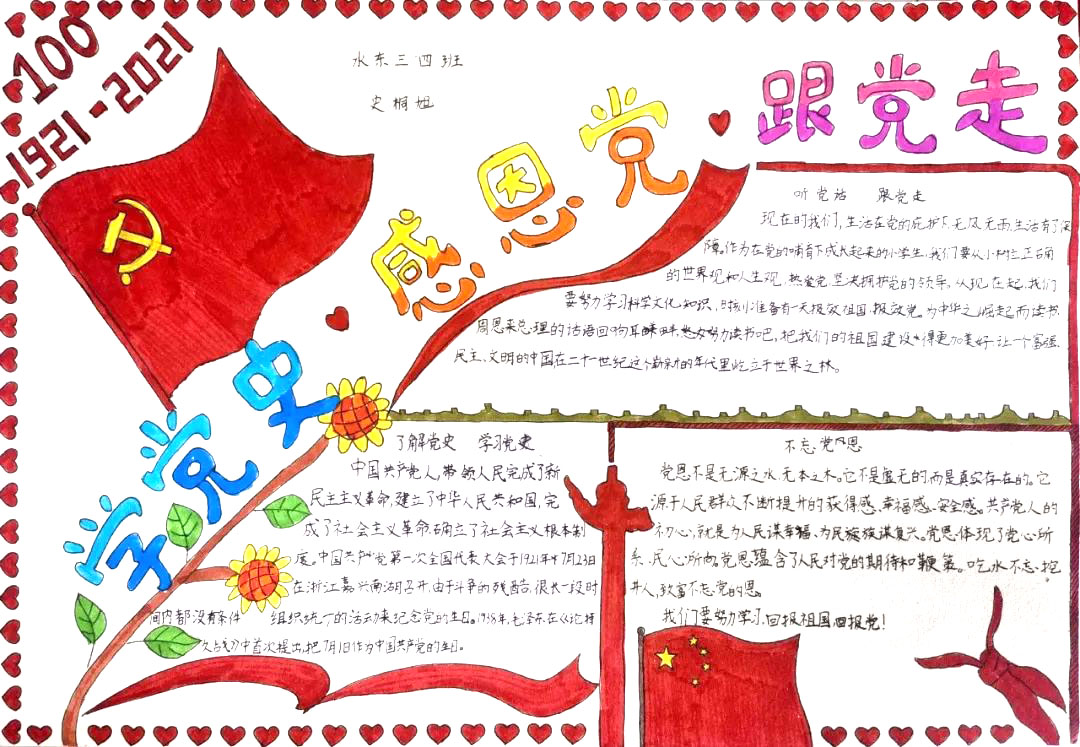 100
1921-2021
水东三四班
史桐妲
学党史
感恩党
跟党走
听党话 跟党走
现在的我们,生活在党的庇护下,无风无雨,生活有了保
障。作为在党的哺育下成长起来的小学生,我们要从小树立正确
的世界观和人生观,热爱党,坚决拥护党的领导,从现在起,我们
要努力学习科学文化知识,时刻准备有一天报效祖国,报效党,为中华之崛起而读书
周恩来总理的话语回响耳
努力读书吧,把我们的祖国建设得更加美好,让一个富强、
民主、文明的中国在二十一世纪这个崭新的年代里屹立于世界之林。
了解党史 学习党史
中国共产党人,带领人民完成了新
民主主义革命,建立了中华人民共和国,完
成了社会主义革命,确立了社会主义根本制
度。中国共产党第一次全国代表大会于1921年7月23日
在浙江嘉兴南湖召开,由于斗争的残酷,很长一段时
间内都没有条件 组织统一的活动来纪念党的生日。1938年,毛泽东在《论持
久战》中首次提出,把7月1日作为中国共产党的生日。
不忘党恩
党恩不是无源之水,无本之木。它不是虚无的,而是真实存在的。它
源于人民群众不断提升的获得感、幸福感、安全感。共产党人的
初心,就是为人民谋幸福,为民族谋复兴。党恩体现了党心所
系、民心所向。党恩蕴含了人民对党的期待和鞭策。吃水不忘挖
井人,致富不忘党的恩。
我们要努力学习,回报祖国,回报党!